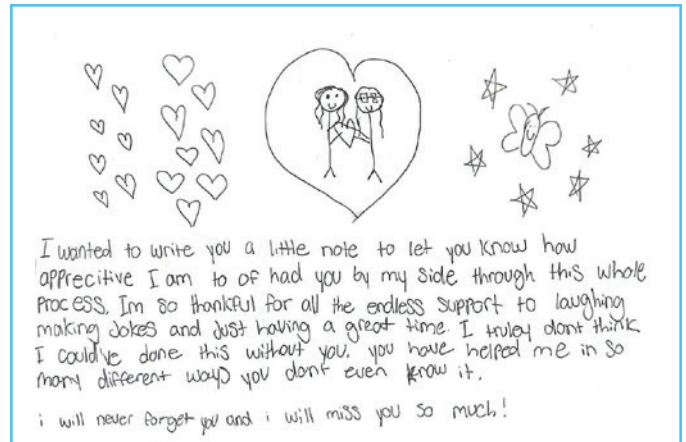 I wanted to write you a little note to let you know how
apprecitive I am to of had you by my side through this whole
process. Im so thankful for all the endless support to laughing
making Jokes and Just having a great time. I truley dont think
I could've done this without you. you have helped me in so
many different ways you dont even know it.
i will never forget you and i will miss you so much!